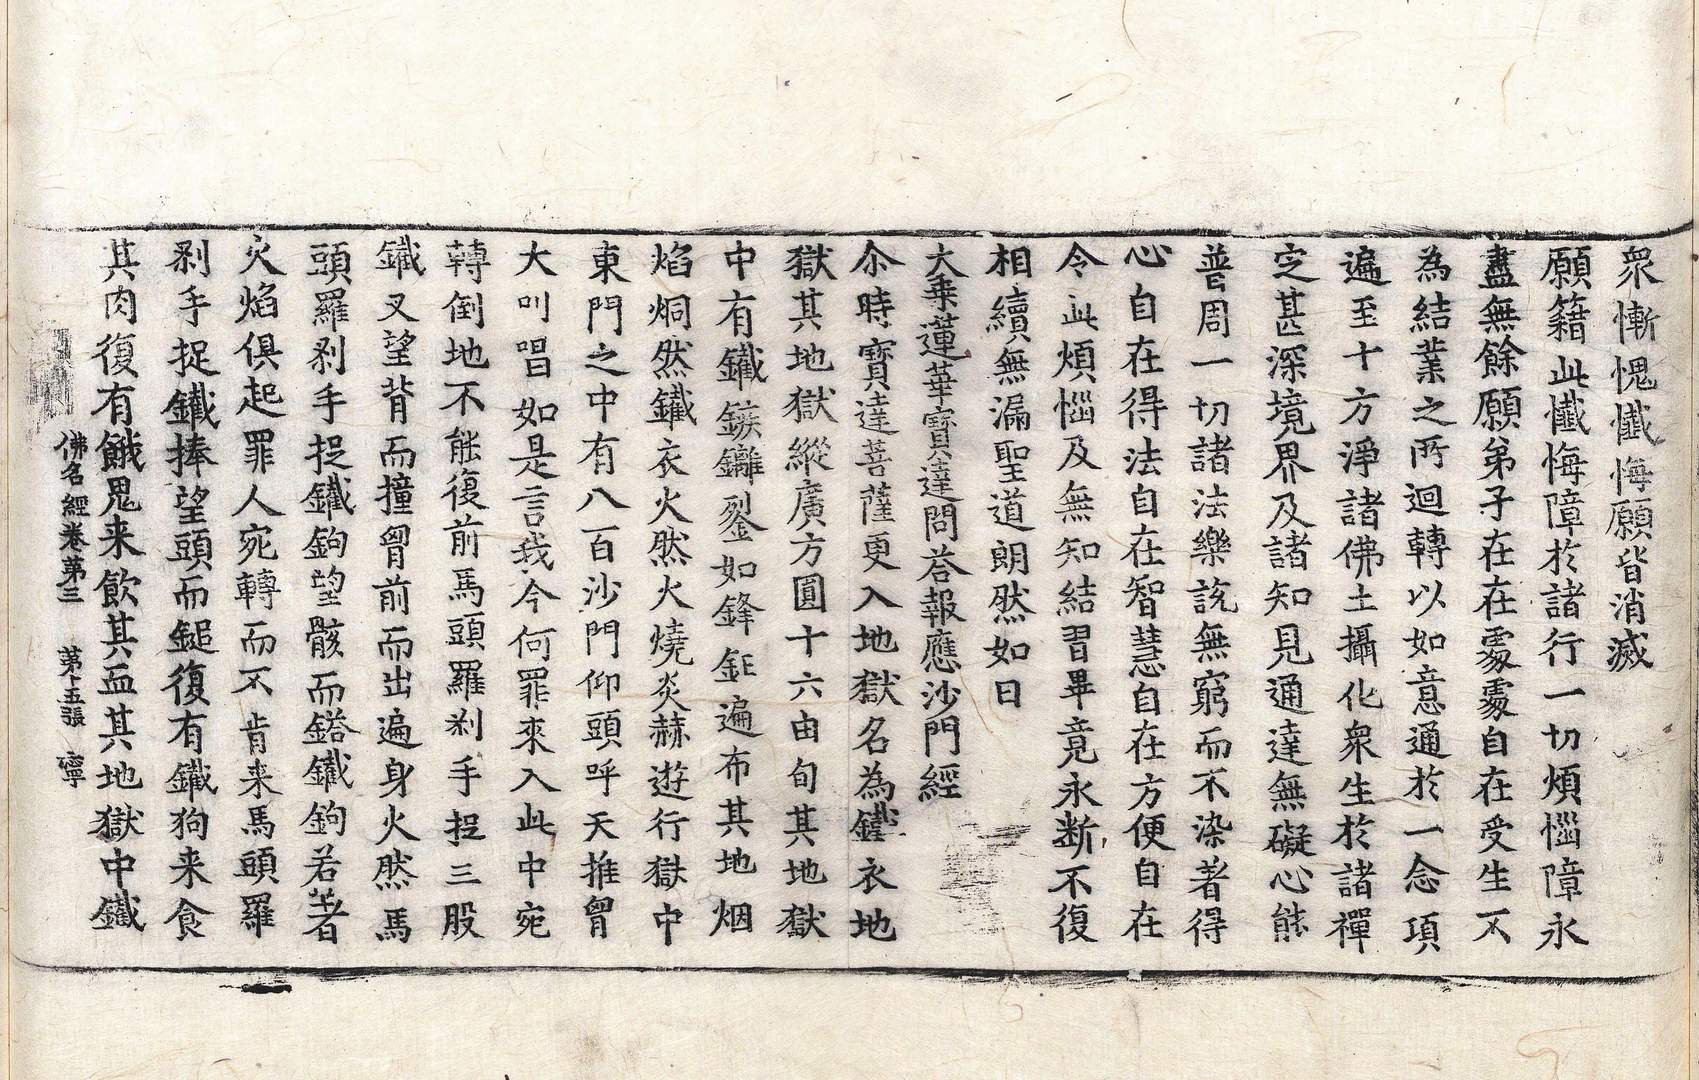 衆慚愧懺悔願皆消滅
願籍此懺悔障於諸行一切煩惱障永
盡無餘願弟子在在䖏䖏自在受生不
為結業之所迴轉以如意通於一念項
遍至十方淨諸佛土攝化衆生於諸禪
㝎甚深境界及諸知見通達無礙心能
普周一切諸法樂說無窮而不染著得
心自在得法自在智慧自在方便自在
令此煩惱及無知結習畢竟永断不復
相續無漏聖道朗然如日
大乗蓮華寶達問荅報應沙門經
尒時寶達菩薩更入地獄名為鐵衣地
獄其地獄縱廣方圓十六由旬其地獄
中有鐵鏃鑗鋫如鋒鉅遍布其地烟
焰烔然鐵衣火然火燒炎赫遊行獄中
東門之中有八百沙門仰頭呼天推胷
大叫唱如是言我今何罪來入此中宛
轉倒地不能復前馬頭羅刹手捉三股
鐵叉望背而撞胷前而出遍身火然馬
頭羅刹手捉鐵鉤望骸而鎝鐵鉤若著
火焰俱起罪人宛轉而不肯来馬頭羅
刹手捉鐵捧望頭而鎚復有鐵狗来食
其肉復有餓鬼来飲其血其地獄中鐵
佛名經卷第三 第十五張 寧